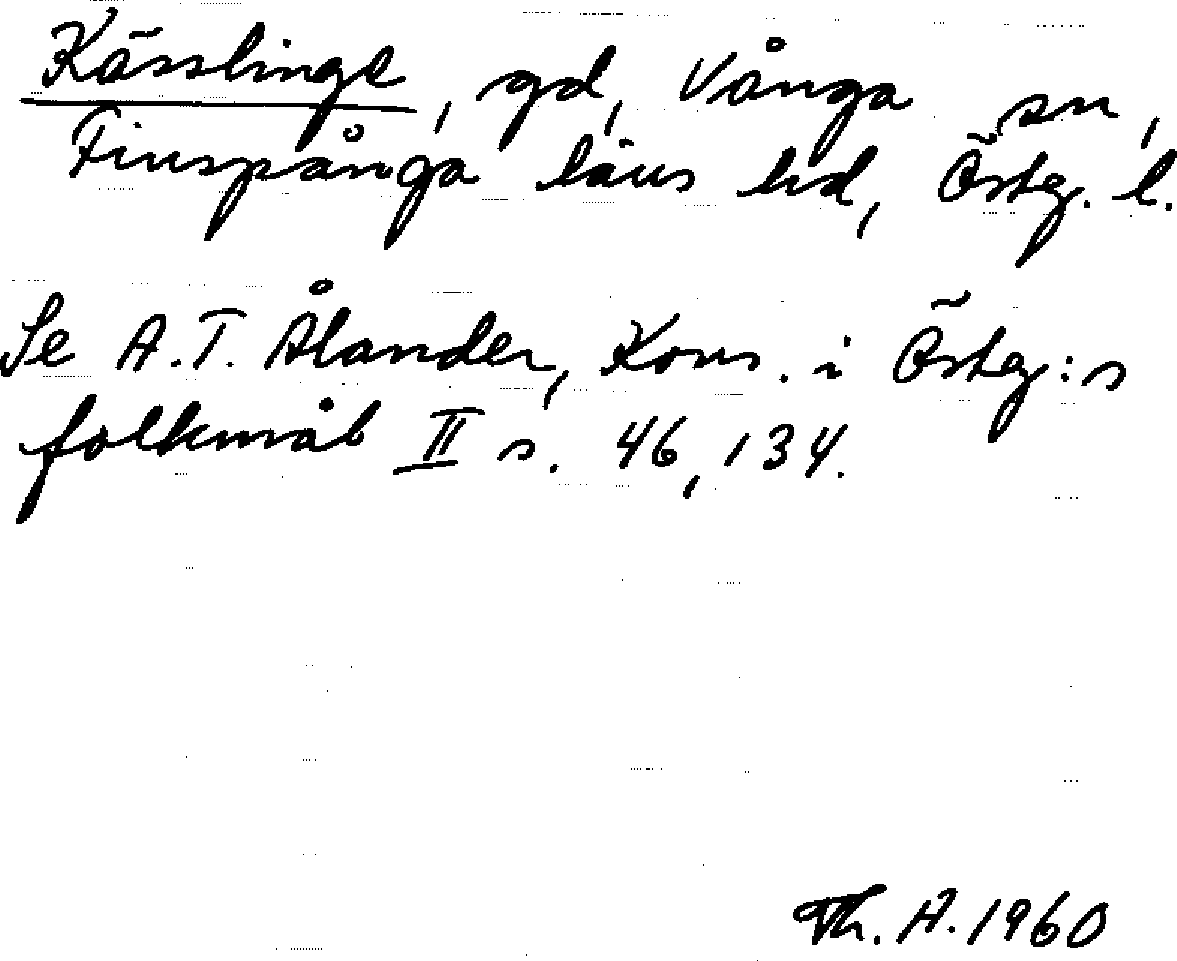 Kässlinge, gd, Vånga sn,
Finspånga läns hd, Östg. l.
Se A.T. Ålander, Kons. i Östg:s
folkmål II s. 46, 134.
Th. A. 1960